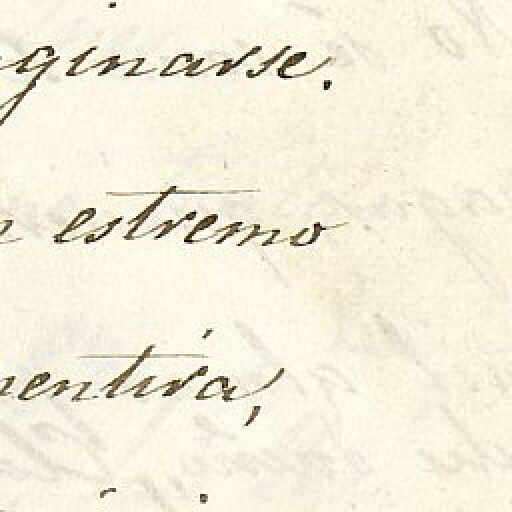 ginarse.
estremo
mentira,